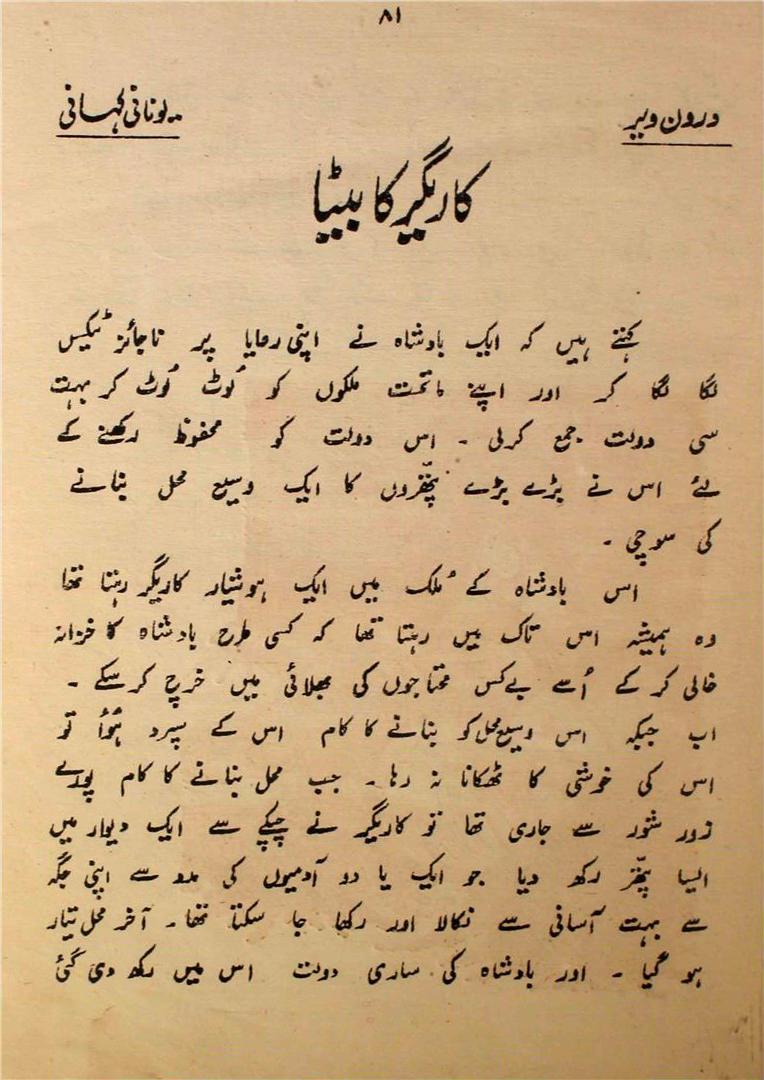 ۸۱
درون ویر
یونانی کہانی
کاریگر کا بیٹا
کہتے ہیں کہ ایک بادشاہ نے اپنی رعایا پر ناجائز ٹیکس
لگا لگا کر اور اپنے ماتحت ملکوں کو لُوٹ لُوٹ کر بہت
سی دولت جمع کرلی ۔ اس دولت کو محفوظ رکھنے کے
لئے اس نے بڑے بڑے پتھّروں کا ایک وسیع محل بنانے
کی سوچی ۔
اس بادشاہ کے مُلک میں ایک ہوشیار کاریگر رہتا تھا
وہ ہمیشہ اس تاک میں رہتا تھا کہ کسی طرح بادشاہ کا خزانہ
خالی کر کے اُسے بےکس محتاجوں کی بھلائی میں خرچ کرسکے ۔
اب جبکہ اس وسیع محل کو بنانے کا کام اس کے سپرد ہُوا تو
اس کی خوشی کا ٹھکانا نہ رہا ۔ جب محل بنانے کا کام پورے
زور شور سے جاری تھا تو کاریگر نے چپکے سے ایک دیوار میں
ایسا پتھّر رکھ دیا جو ایک یا دو آدمیوں کی مدد سے اپنی جگہ
سے بہت آسانی سے نکالا اور رکھا جا سکتا تھا ۔ آخر محل تیار
ہو گیا ۔ اور بادشاہ کی ساری دولت اس میں رکھ دی گئی